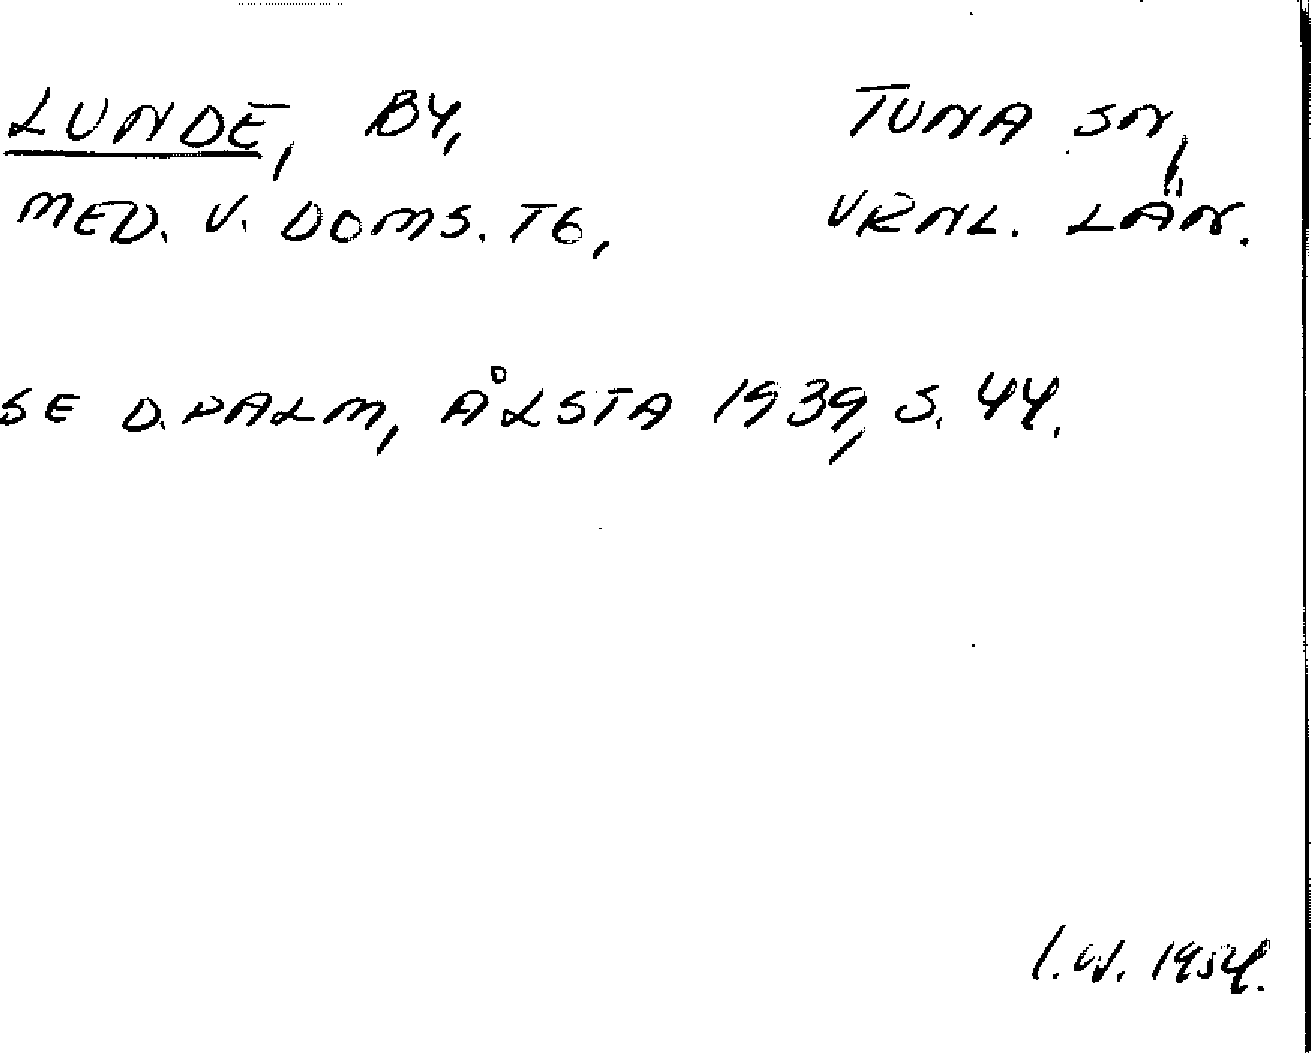 LUNDE, BY, TUNA SN,
MED. V. DOMS. TG, VRNL. LÄN.
SE D. PALM, ÅLSTA 1939, S. 44.
I. W. 1954.